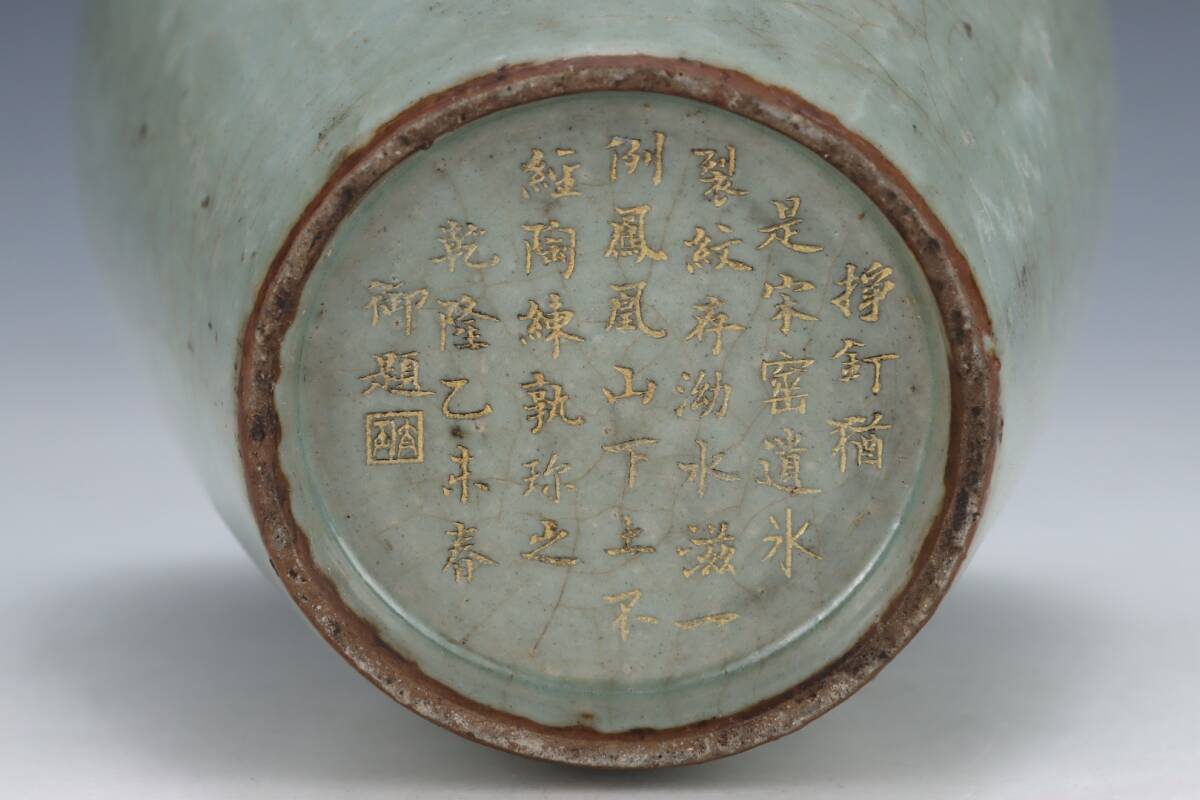 掙釘猶
是宋窰遺氷
裂紋存泑水滋一
例鳳凰山下土不
經陶練孰珎之
乾隆乙未春
御題